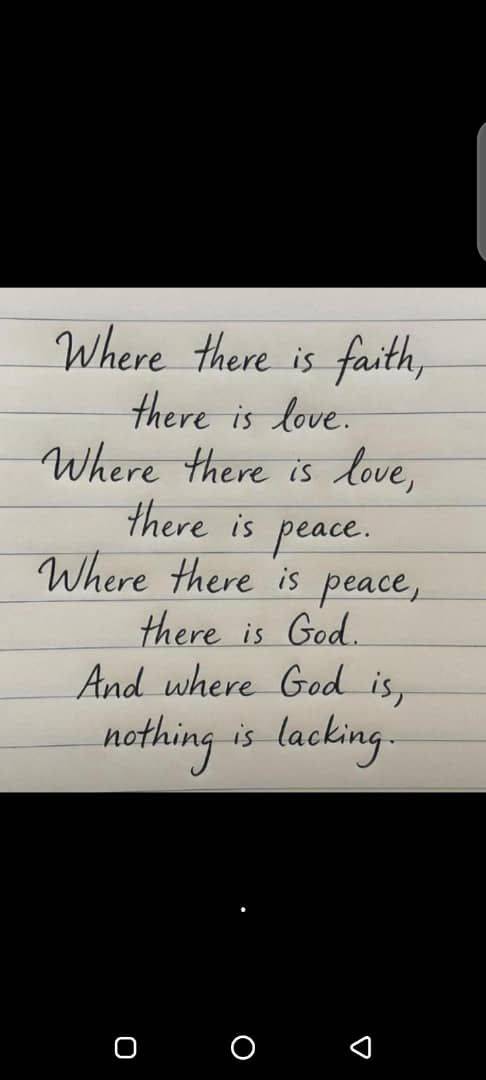 Where there is faith,
there is love.
Where there is love,
there is peace.
Where there is peace,
there is God.
And where God is,
nothing is lacking.